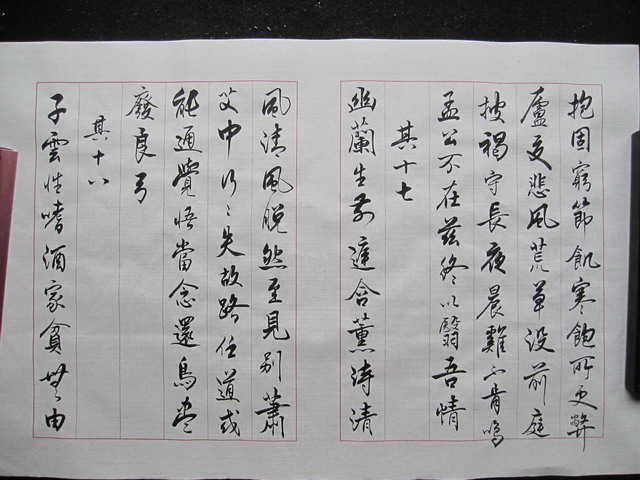 抱固窮節飢寒飽所更弊
廬交悲風荒草没前庭
披褐守長夜晨雞不肯鳴
孟公不在兹終以翳吾情
其十七
幽蘭生前庭含薰待清
風清風脱然至見别蕭
艾中行〻失故路任道或
能通覺悟當念還鳥盡
廢良弓
其十八
子雲性嗜酒家貧無由